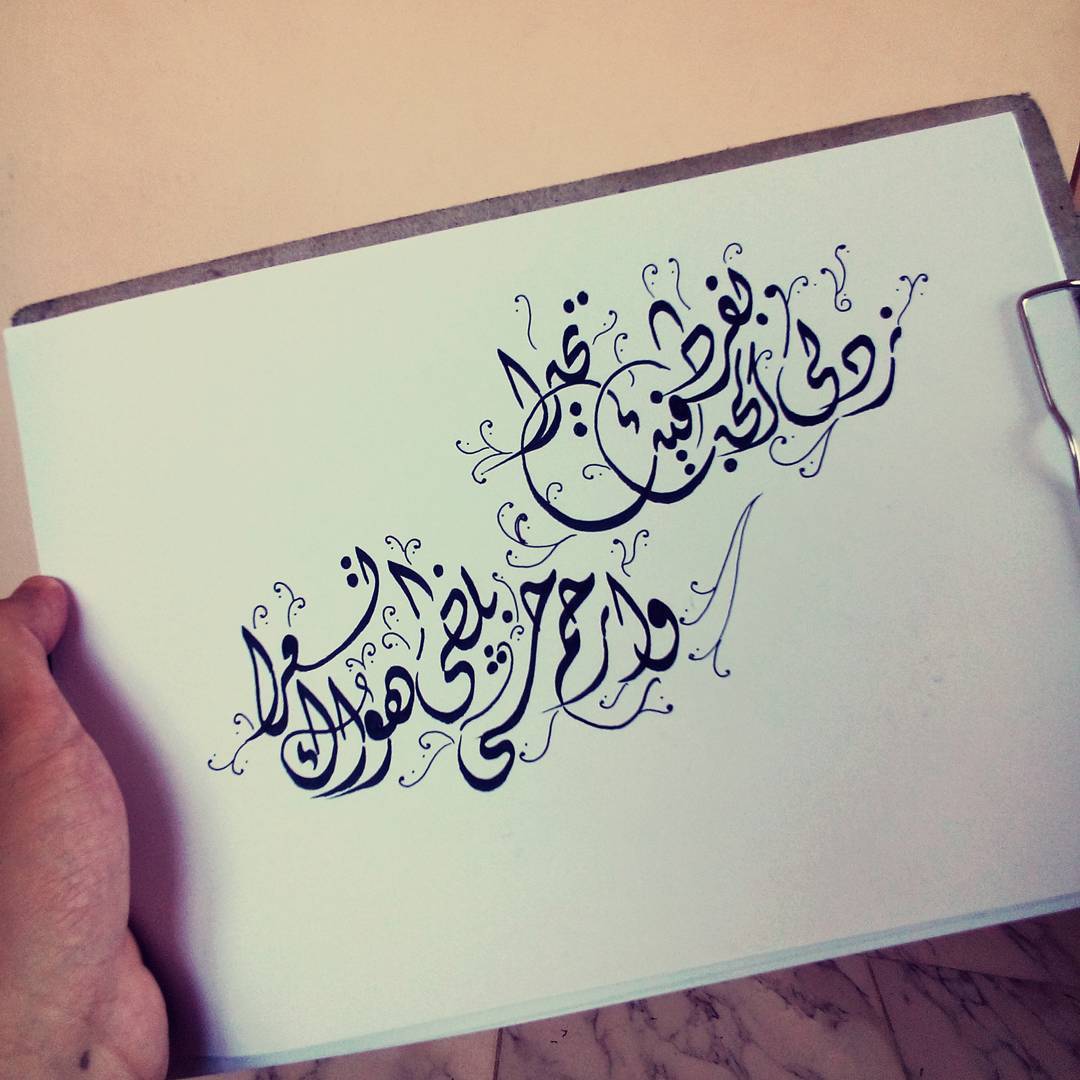 زدني بفرط الحب فيك تحيرا
وارحم حشى بلظى هواك تسعرا